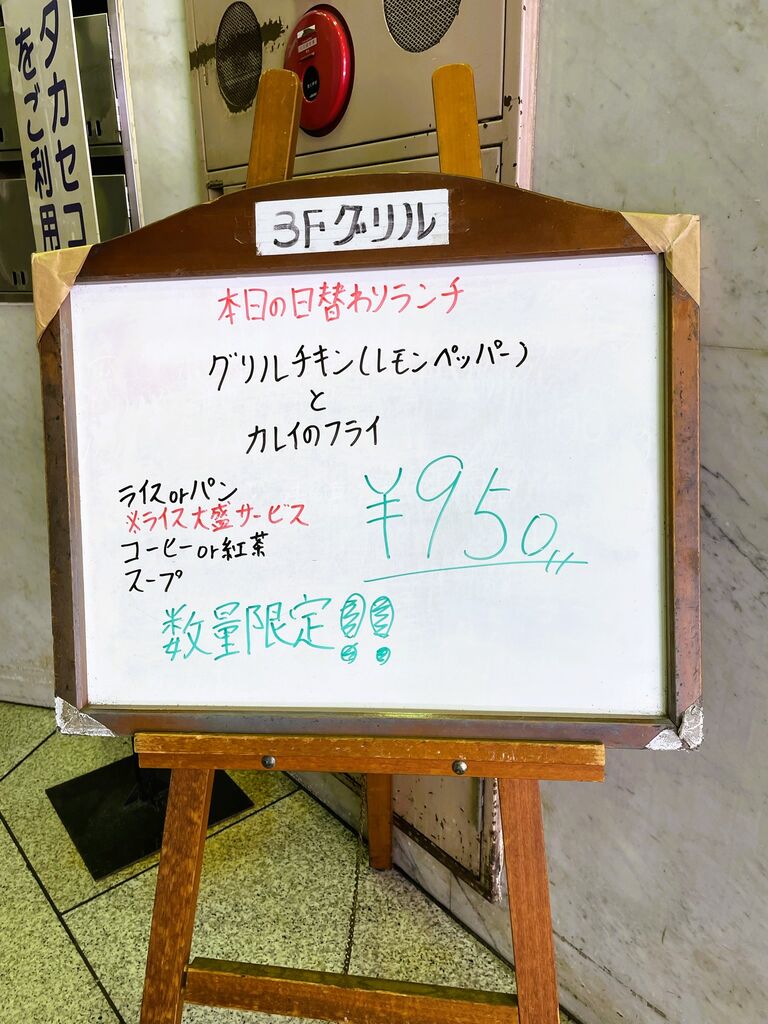 タカセコ
をご利用
3Fグリル
本日の日替わりランチ
グリルチキン(レモンペッパー)
と
カレイのフライ
ライスorパン
※ライス大盛サービス
コーヒーor紅茶
スープ
¥950
数量限定!!